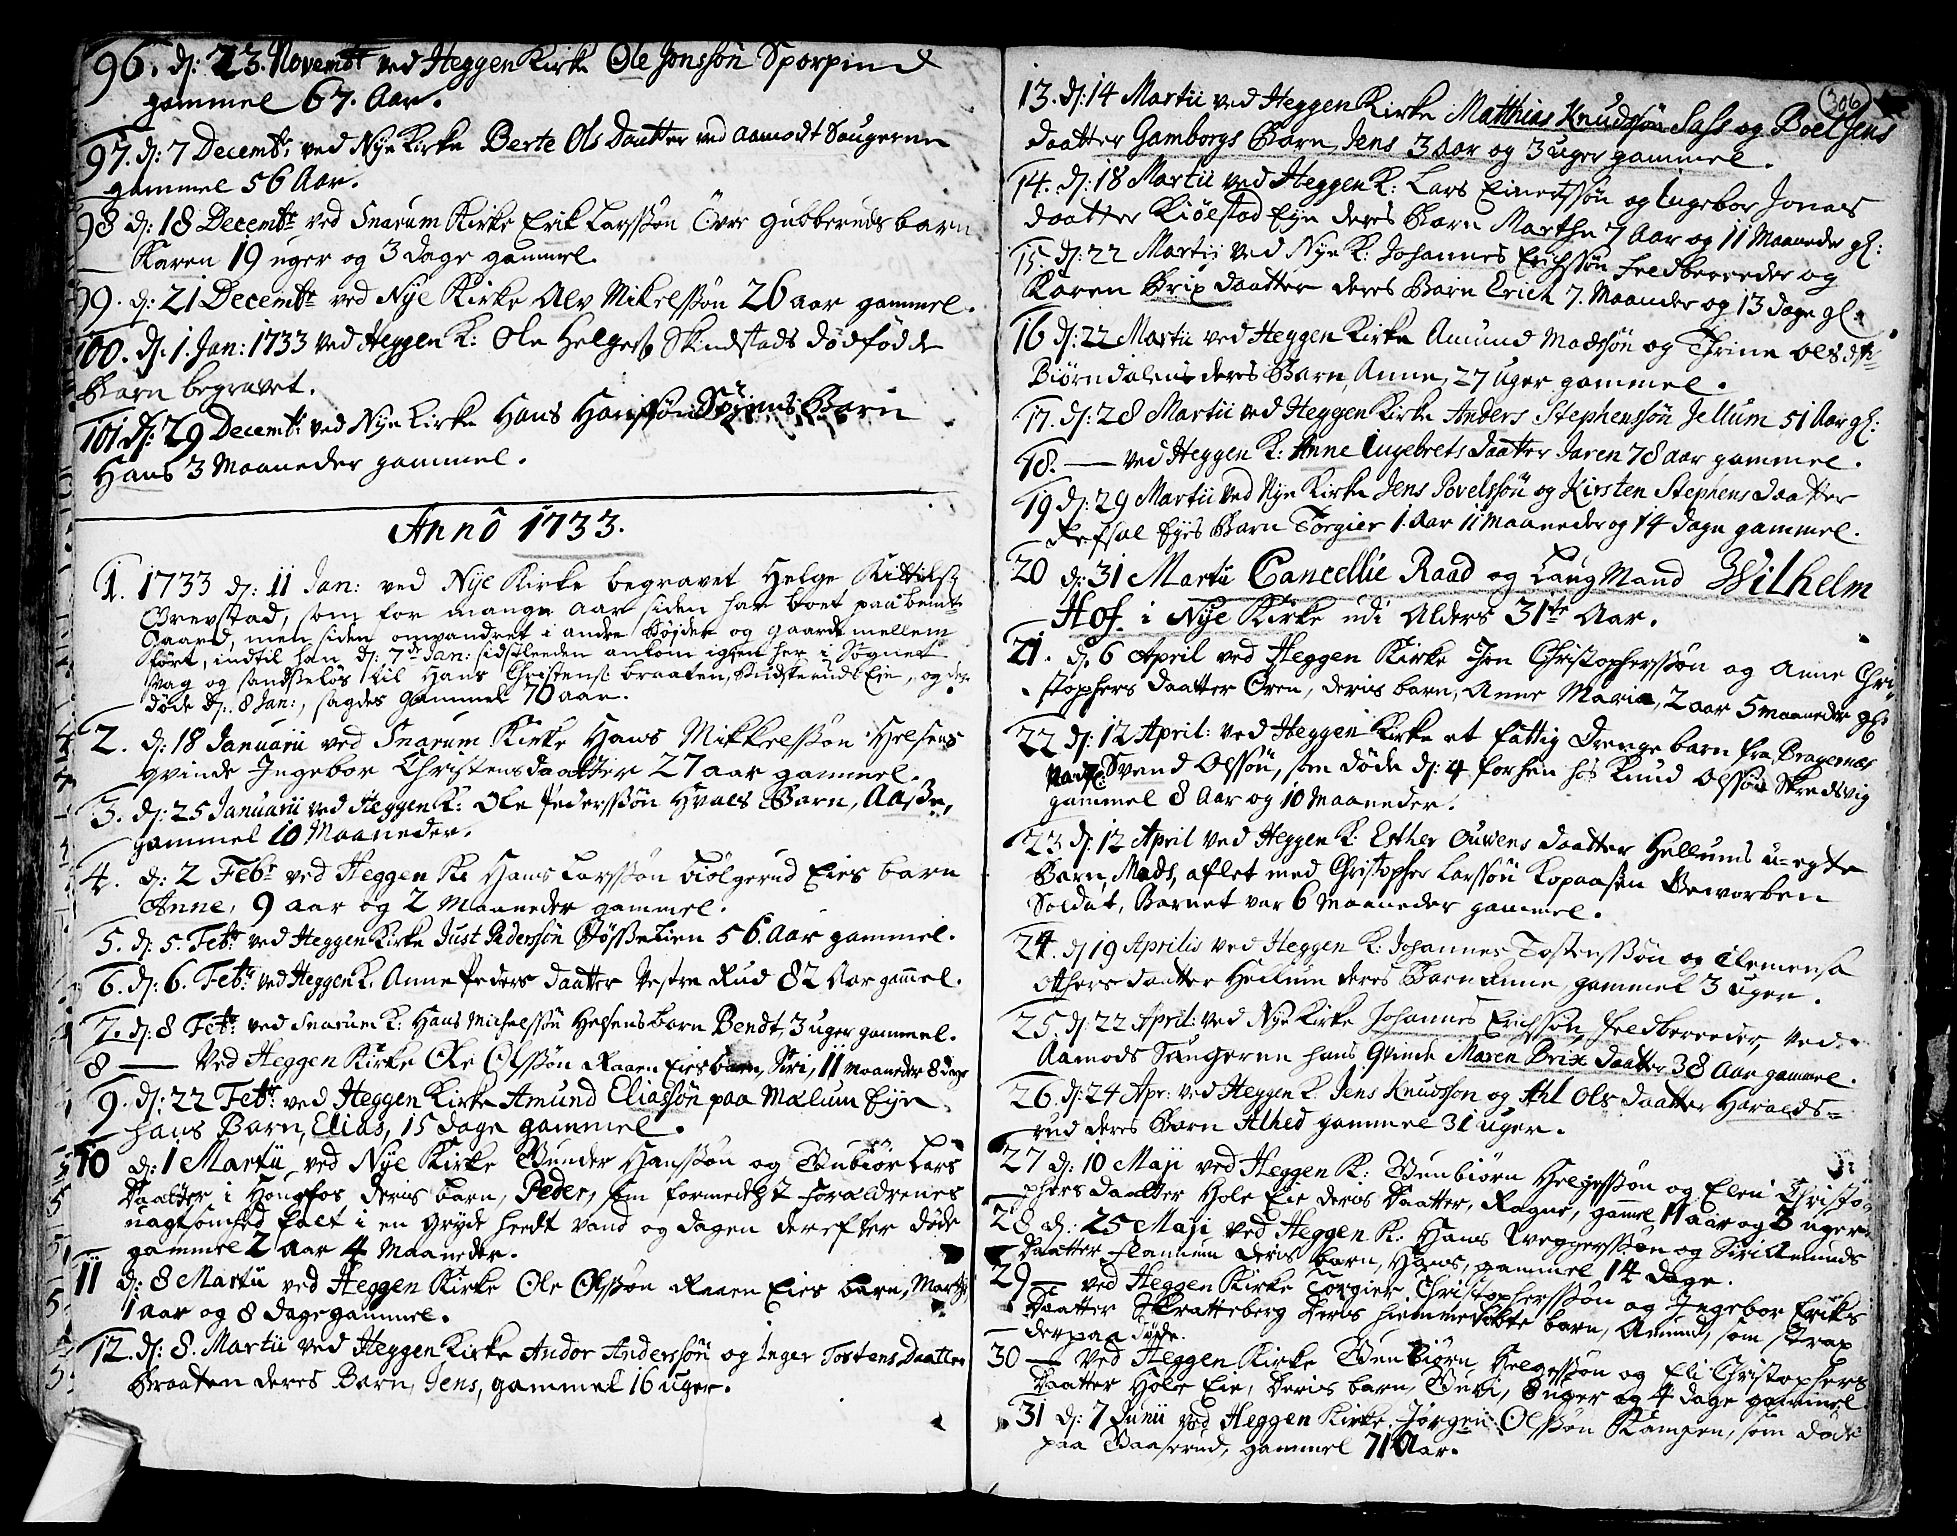 96. d: 23. Novembr ved Heggen Kirke Ole Jonssøn Sporpind
gammel 67. Aar.
97. d: 7 Decembr: ved Nye Kirke Berte Ols Daatter ved Aamodt Saugerne
gammel 56 Aar.
98 d: 18 Decembr ved Snarum Kirke Erik Larssøn Övre Gubberuds barn
Karen 19 uger og 3 dage gammel.
99. d: 21 Decembr ved Nye Kirke Alv Mikelssøn 26 aar gammel.
100. d: 1. Jan: 1733 ved Heggen K: Ole Helges: Skindstads dødfødde
Barn begravet.
101 d: 29 Decembr: ved Nye Kirke Hans Hanssøn Sørens Barn
Hans 3 Maaneder gammel.
Anno 1733.
1. 1733 d: 11 Jan: ved Nye Kirke begravet Helge Kittils:
Grevstad, som for mange aar siden har boet paa bemte
Gaard, men siden omvandret i andre Bøjder og gaarde mellem
fört, indtil han d: 7de Jan: sidstleeden ankom igien her i Sognet
svag og sandsseløs til Hans Christens: braaten, Buskeruds Eie, og der
døde d: 8 Jan:, sagdes gammel 70 aar.
2. d: 18 Januarii ved Snarum Kirke Hans Mikkelssøn Helsens
qvinde Ingebor Christensdaatter 27 aar gammel.
3. d: 25 Januarii ved Heggen K: Ole Pederssøn Hvals Barn, Aasse,
gammel 10 Maaneder.
4. d: 2 Febr ved Heggen K: Hans Larssøn Fiölgerud Eies barn
Anne, 9 aar og 2 Maaneder gammel.
5. d: 5. Febr: ved Heggen Kirke Just Pederssøn Støsselien 56. Aar gammel.
6. d: 6. Febr: ved Heggen K. Anne Peders daatter Vestre Rud 82 Aar gamel.
7. d: 8 Febr. ved Snarum K: Hans Michelssøn Helsens barn Bendt, 3 uger gammel.
8 — Ved Heggen Kirke Ole Olssøn Raaen Eies barn, Siri, 11 Maaneder 8 dage
9. d: 22 Febr: ved Heggen Kirke Amund Eliassøn paa Mælum Eje
hans Barn, Elias, 15 dage gammel.
10 d: 1 Martii ved Nye Kirke Gunder Hanssøn og Gunbiör Lars
Daatter i Hougfos deris barn, Peder, som formedelst foraldrenes
uagtsomhed falt i en gryde heedt vand og dagen derefter døde
gammel 2 aar 4 Maaneder.
11 d: 8 Martii ved Heggen Kirke Ole Olssøn Raaen Eies barn, Marthe
1 aar og 8 dage gammel.
12. d: 8. Martii ved Heggen Kirke Andor Anderssøn og Inger Tostens Daatter
Braaten deres Barn, Jens, gammel 16 uger.
306
13. d: 14 Martii ved Heggen Kirke Matthias Knudssøn Sass og Boel Jens
daatter Gamborgs Barn, Jens 3 Aar og 3 uger gammel.
14. d: 18 Martii ved Heggen K: Lars Einertssøn og Ingebor Jonas
daatter Kiølstad Eje deres Barn Marthe 7 Aar og 11 Maaneder gl:
15 d: 22 Martii ved Nye K: Johannes Erichssøn Feldbereeder og
Karen Brix daatter deres Barn Erich 7. Maander og 13 dage gl.
16 d: 22 Martii ved Heggen Kirke Amund Madssøn og Thrine Ols dtr
Biørndalens deres Barn Anne, 27 uger gammel.
17. d: 28 Martii ved Heggen Kirke Anders Stephenssøn Jellum 51 Aar gl:
18. — ved Heggen K: Anne Ingebrets daatter Jaren 78 aar gammel.
19 d: 29 Martii ved Nye Kirke Jens Povelssøn og Kirsten Stephens daatter
Refsal Ejes Barn Torgier 1. Aar 11 maaneder og 14 dage gammel.
20 d: 31 Martii Cancellie Raad og Laug Mand Wilhelm
Hof i Nye Kirke udi Alders 31te Aar.
21. d. 6 April ved Heggen Kirke Jon Christopherssøn og Anne Chri
stophers daatter Øren, deris barn, Anne Maria, 2 aar 5 maaneder gl:
22 d: 12 April: ved Heggen Kirke et fattig Drenge barn fra Bragernæs
Svend Olssøn, som døde d: 4 forhen hos Knud Olssøn Skredsvig
gammel 8 Aar og 10 Maaneder.
23 d: 12 April ved Heggen K: Esther Ouwens daatter Hellums u-egte
Barn, Mads, aflet med Christopher Larssøn Kopaasen Geworben
Soldat, Barnet var 6 Maaneder gammel.
24. d 19 Aprilis ved Heggen K: Johannes Tostenssøn og Clemensa
Others daatter Hellum deres Barn Anne gammel 3 uger.
25. d: 22 April: ved Nye Kirke Johannes Erichssøn, Feldbereeder, ved
Aamods Saugerne hans Qvinde Maren Brix daatter 38 Aar gammel.
26. d: 24 Apr: ved Heggen K. Jens Knudsson og Ahl Ols daatter Haralds=
rud deres Barn Alhed gammel 31 uger.
27 d: 10 Maji ved Heggen K: Gunbiörn Helgessøn og Eleu Christo=
phers daatter Hole Eie deres Daatter, Ragne, gamel 11 aar og 8 uger
28 d: 25 Maji ved Heggen K: Hans Tveggerssøn og Siri Amunds
Daatter Flannum deris barn, Hans, gammel 14 dage.
29 — ved Heggen Kirke Torgier Christopherssøn og Ingebor Eriks
Daatter Skratteberg deris hiemmedöbte barn, Amund, som strax
derpaa døde.
30 — Ved Heggen Kirke Gunbiørn Helgessøn og Eli Christophers
Daatter Hole Eie, deris barn, Guri, 8 uger og 4 dage gammel
31 d: 7 Junii ved Heggen Kirke Jörgen Olssøn Kampen, som døde
paa Gaaserud, gammel 71 Aar.